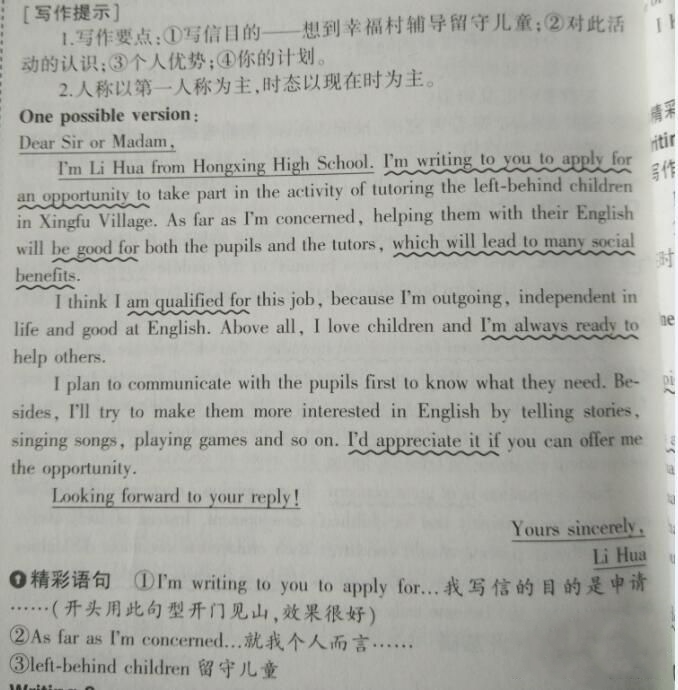 [写作提示]
1.写作要点:①写信目的——想到幸福村辅导留守儿童;②对此活
动的认识;③个人优势;④你的计划。
2.人称以第一人称为主,时态以现在时为主。
One possible version:
Dear Sir or Madam,
I'm Li Hua from Hongxing High School. I'm writing to you to apply for
an opportunity to take part in the activity of tutoring the left-behind children
in Xingfu Village. As far as I'm concerned, helping them with their English
will be good for both the pupils and the tutors, which will lead to many social
benefits.
I think I am qualified for this job, because I'm outgoing, independent in
life and good at English. Above all, I love children and I'm always ready to
help others.
I plan to communicate with the pupils first to know what they need. Be-
sides, I'll try to make them more interested in English by telling stories,
singing songs, playing games and so on. I'd appreciate it if you can offer me
the opportunity.
Looking forward to your reply!
Yours sincerely,
Li Hua
精彩语句 ①I'm writing to you to apply for...我写信的目的是申请
……(开头用此句型开门见山,效果很好)
②As far as I'm concerned...就我个人而言……
③left-behind children 留守儿童